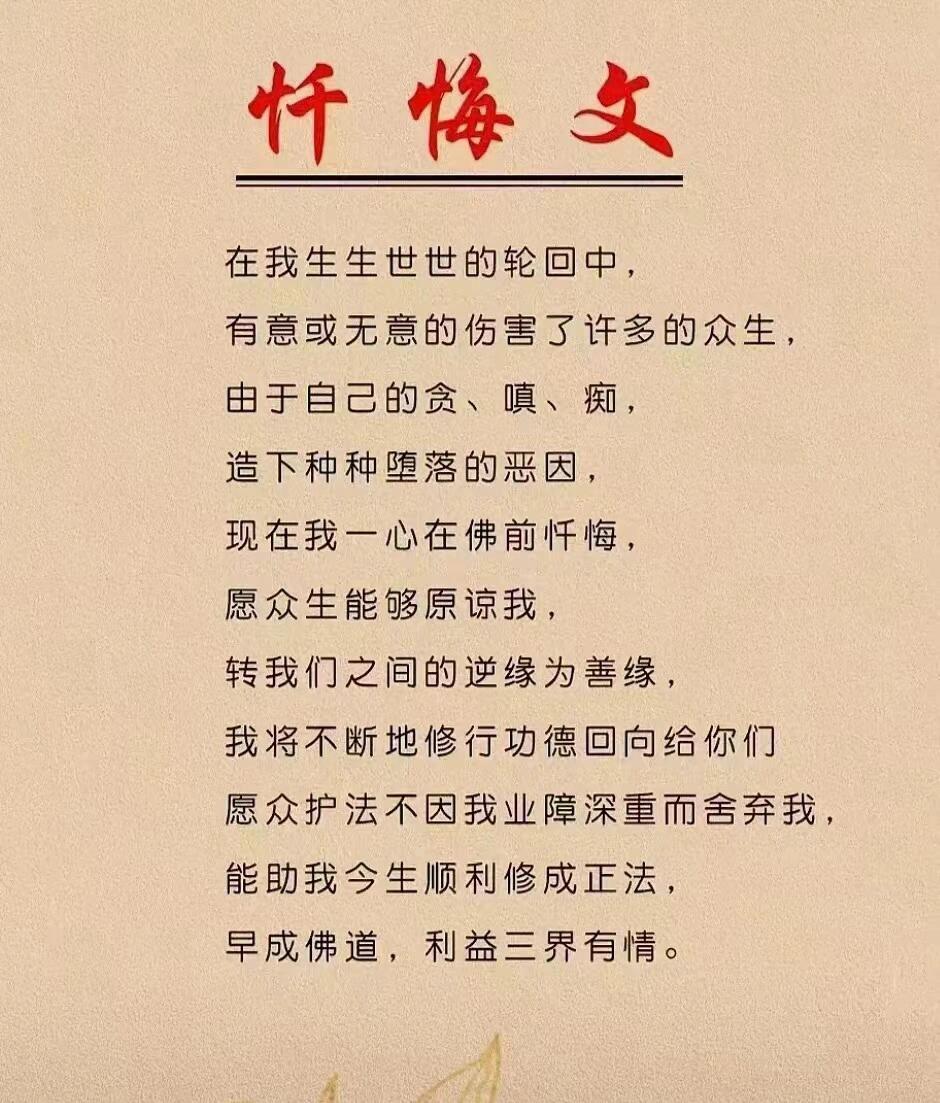 忏悔文
在我生生世世的轮回中，
有意或无意的伤害了许多的众生，
由于自己的贪、嗔、痴，
造下种种堕落的恶因，
现在我一心在佛前忏悔，
愿众生能够原谅我，
转我们之间的逆缘为善缘，
我将不断地修行功德回向给你们
愿众护法不因我业障深重而舍弃我，
能助我今生顺利修成正法，
早成佛道，利益三界有情。